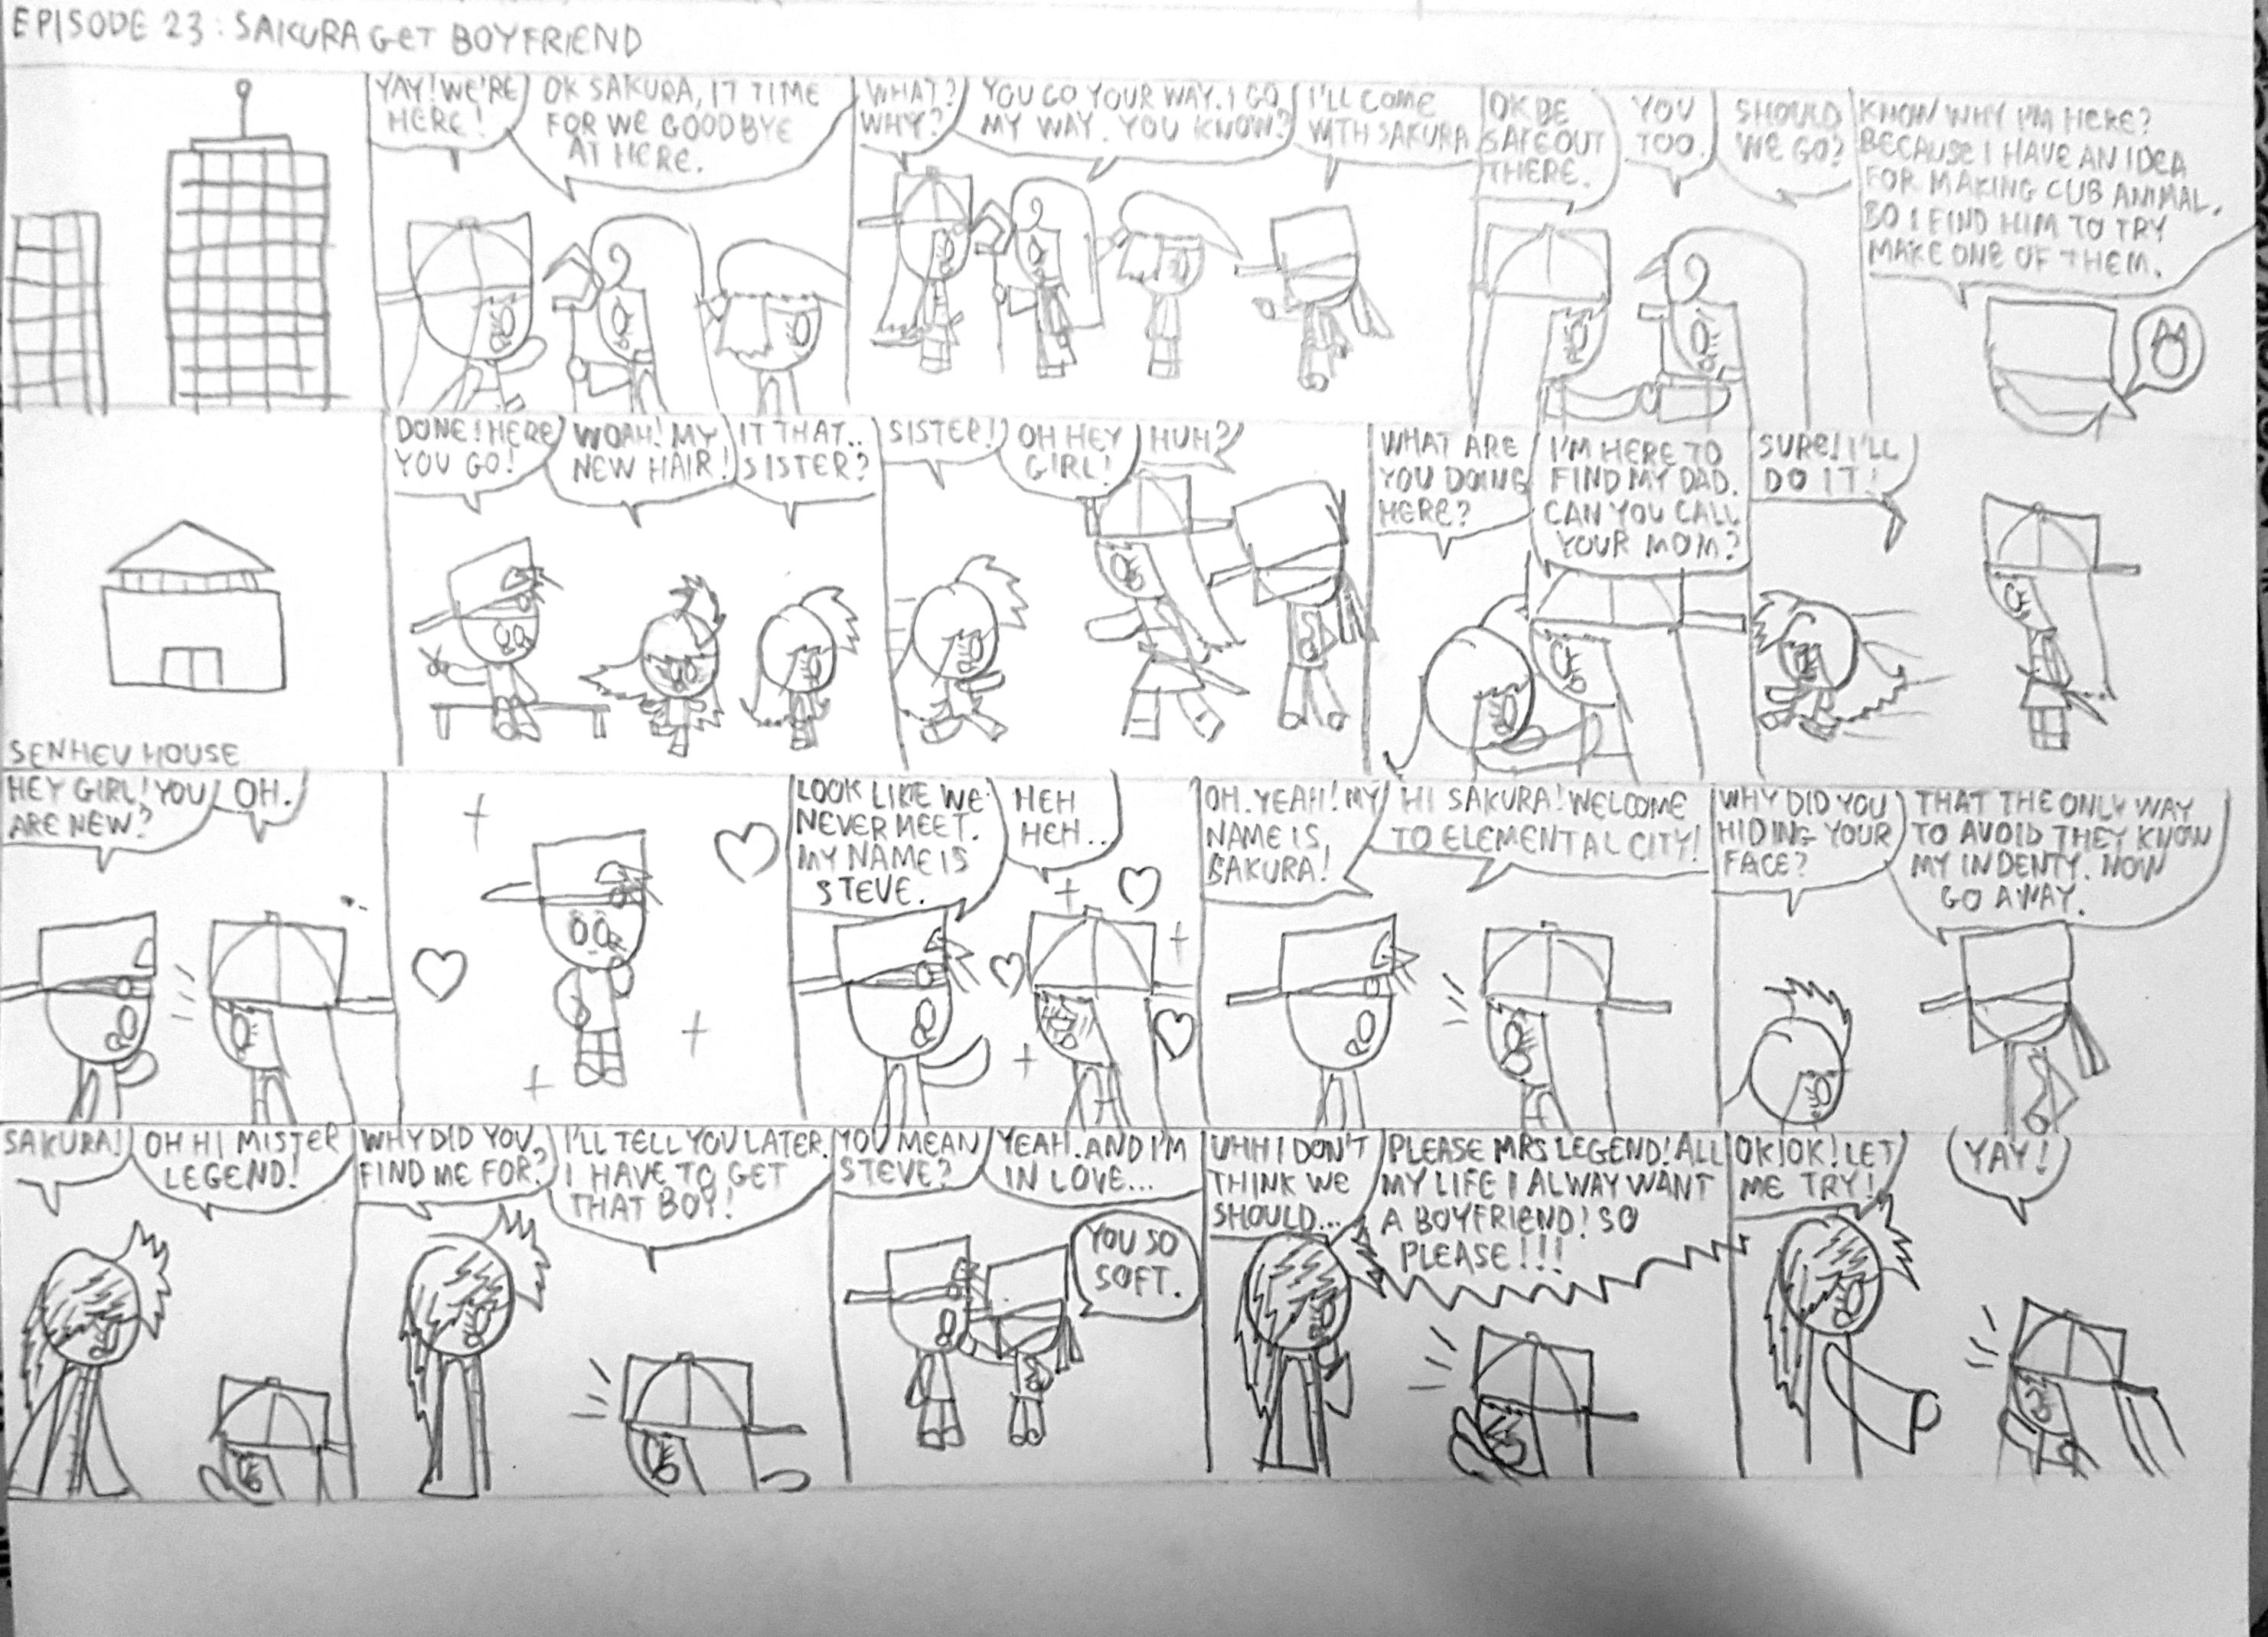 EPISODE 23: SAKURA GET BOYFRIEND
YAY! WE'RE
HERE!
OK SAKURA, IT TIME
FOR WE GOODBYE
AT HERE.
WHAT?
WHY?
YOU GO YOUR WAY. I GO
MY WAY. YOU KNOW?
I'LL COME
WITH SAKURA
OK BE
SAFE OUT
THERE.
YOU
TOO.
SHOULD
WE GO?
KNOW WHY I'M HERE?
BECAUSE I HAVE AN IDEA
FOR MAKING CUB ANIMAL.
SO I FIND HIM TO TRY
MAKE ONE OF THEM.
SENHEV HOUSE
DONE! HERE
YOU GO!
WOAH! MY
NEW HAIR!
IT THAT..
SISTER?
SISTER!
OH HEY
GIRL!
HUH?
WHAT ARE
YOU DOING
HERE?
I'M HERE TO
FIND MY DAD.
CAN YOU CALL
YOUR MOM?
SURE! I'LL
DO IT!
HEY GIRL! YOU
ARE NEW?
OH.
LOOK LIKE WE
NEVER MEET.
MY NAME IS
STEVE.
HEH
HEH...
OH. YEAH! MY
NAME IS,
SAKURA!
HI SAKURA! WELCOME
TO ELEMENTAL CITY!
WHY DID YOU
HIDING YOUR
FACE?
THAT THE ONLY WAY
TO AVOID THEY KNOW
MY INDENTY. NOW
GO AWAY.
SAKURA!
OH HI MISTER
LEGEND!
WHY DID YOU
FIND ME FOR?
I'LL TELL YOU LATER.
I HAVE TO GET
THAT BOY!
YOU MEAN
STEVE?
YEAH. AND I'M
IN LOVE...
YOU SO
SOFT.
UHH I DON'T
THINK WE
SHOULD...
PLEASE MRS LEGEND! ALL
MY LIFE I ALWAY WANT
A BOYFRIEND! SO
PLEASE!!!
OK! OK! LET
ME TRY!
YAY!